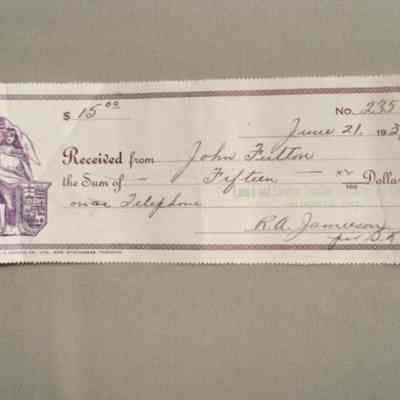 $ 15.00
No. 235
June 21, 193
Received from John Fulton
the Sum of - Fifteen - xx/100 Dolla
on a/c Telephone
R.A. Jamieson
per